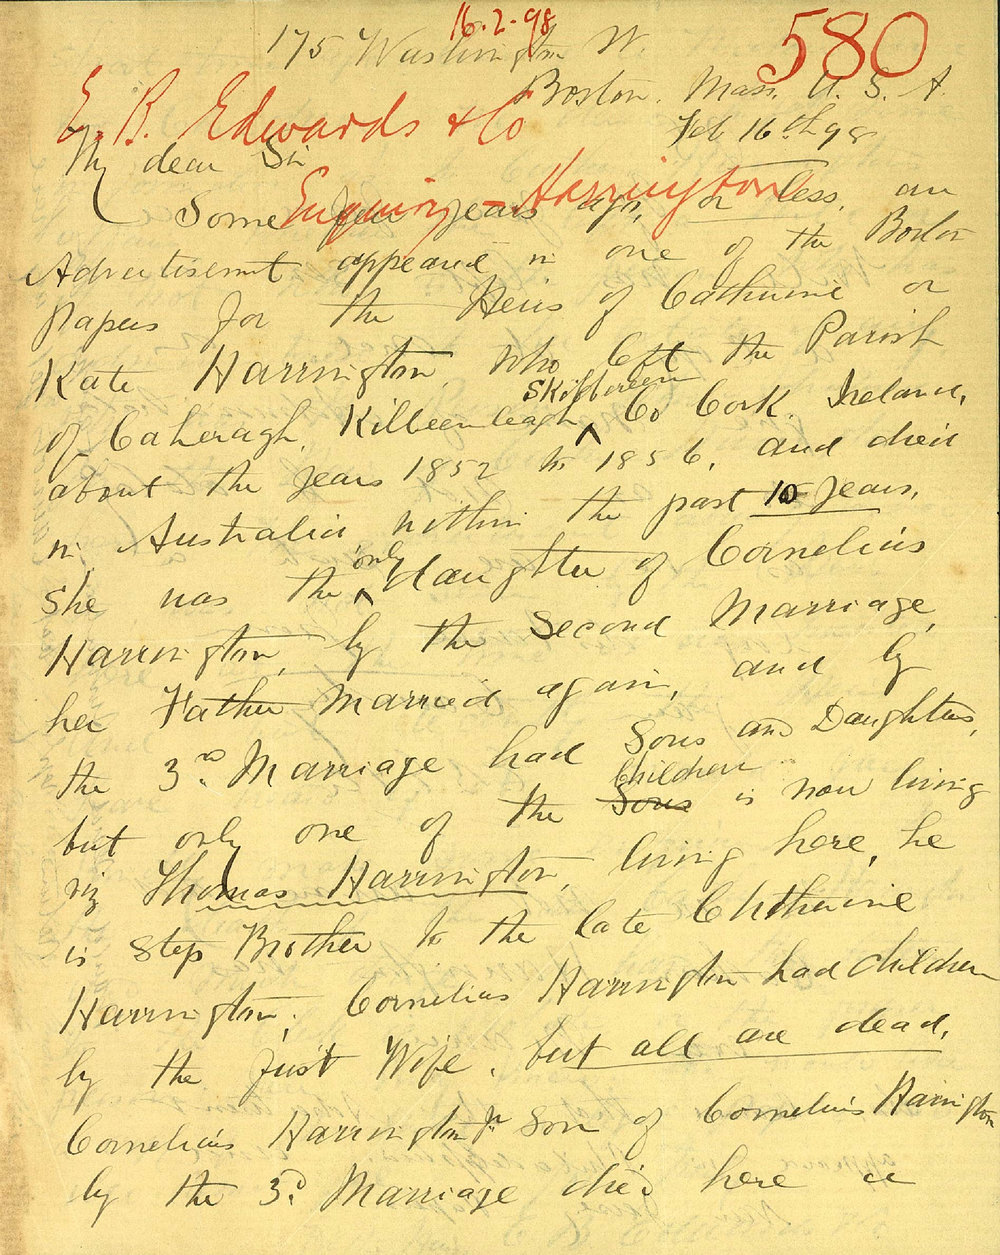 16.2.98
175 Washington St.
580
Boston. Mass. U. S. A
E. B. Edwards & Co
Feb 16th 98
My dear Sir
Enquiry - Harrington
Some few years ago, or less, an
Advertisement appeared in one of the Boston
papers for the Heirs of Catherine or
Kate Harrington, who left the Parish
of Caheragh, Killeenleagh ^ Skibbereen Co Cork. Ireland,
about the years 1852 to 1856, and died
in Australia, within the past 10 years,
She was the ^ only daughter of Cornelius
Harrington, by the Second Marriage,
her Father Married again, and by
the 3rd Marriage had Sons and Daughters,
but only one of the Sons Children is now living
viz Thomas Harrington, living here, he
is Step Brother to the late Chtherine
Harrington, Cornelius Harrington had children
by the first Wife, but all are dead,
Cornelius Harrington Jr Son of Cornelius Harrington
by the 3d Marriage died here a